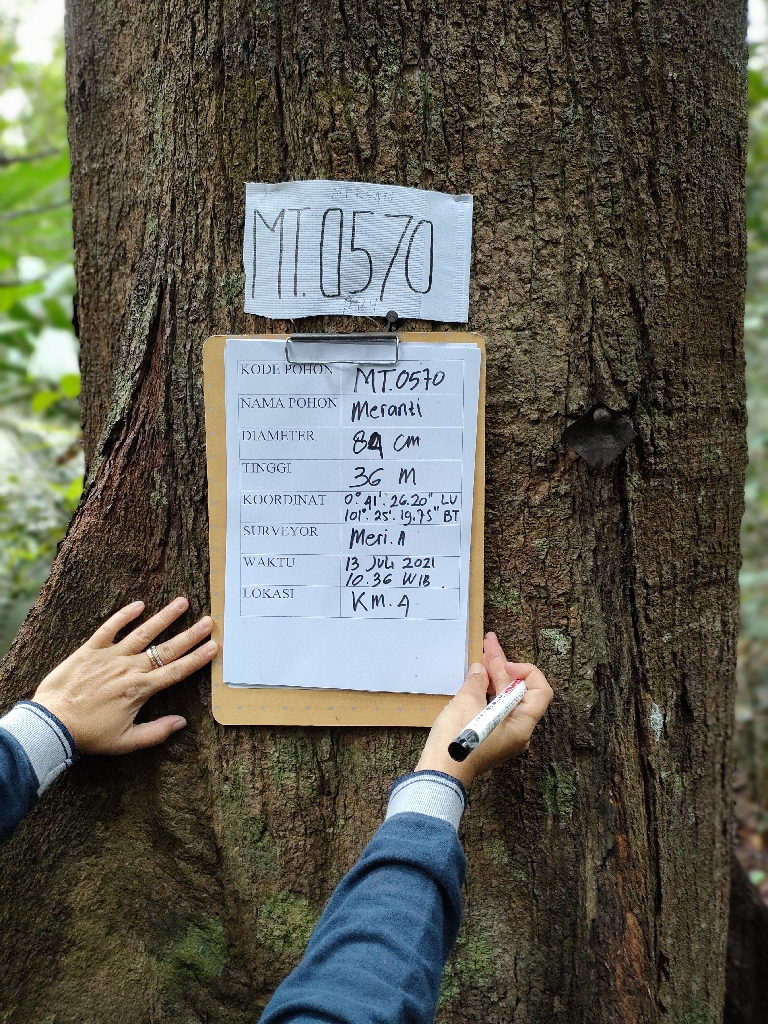 MT.0570
KODE POHON MT.0570
NAMA POHON Meranti
DIAMETER 89 cm
TINGGI 36 M
KOORDINAT 0° 41'. 26.20" LU
101°. 25'. 19.75" BT
SURVEYOR Meri. A
WAKTU 13 Juli 2021
10.36 WIB.
LOKASI KM. 4